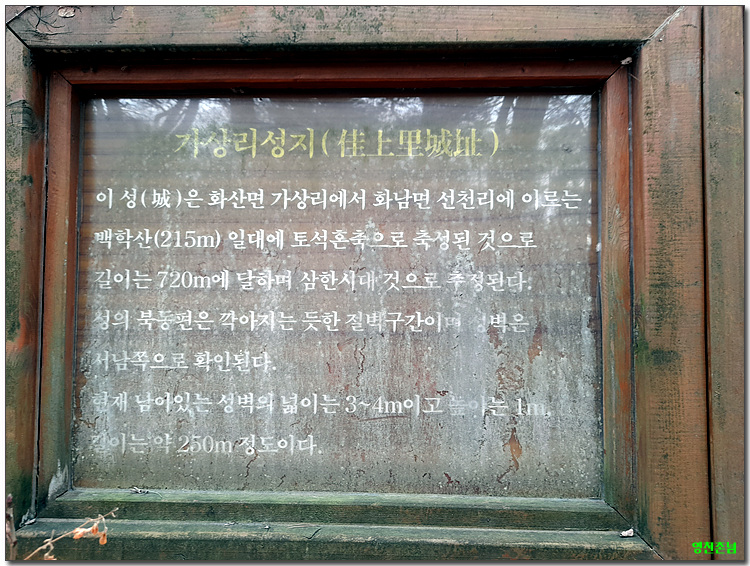 가상리성지(佳上里城址)
이 성(城)은 화산면 가상리에서 화남면 선천리에 이르는
백학산(215m) 일대에 토석혼축으로 축성된 것으로
길이는 720m에 달하며 삼한시대 것으로 추정된다.
성의 북동편은 깍아지는 듯한 절벽구간이며 성벽은
서남쪽으로 확인된다.
현재 남어있는 성벽의 넓이는 3~4m이고 높이는 1m,
길이는 약 250m 정도이다.